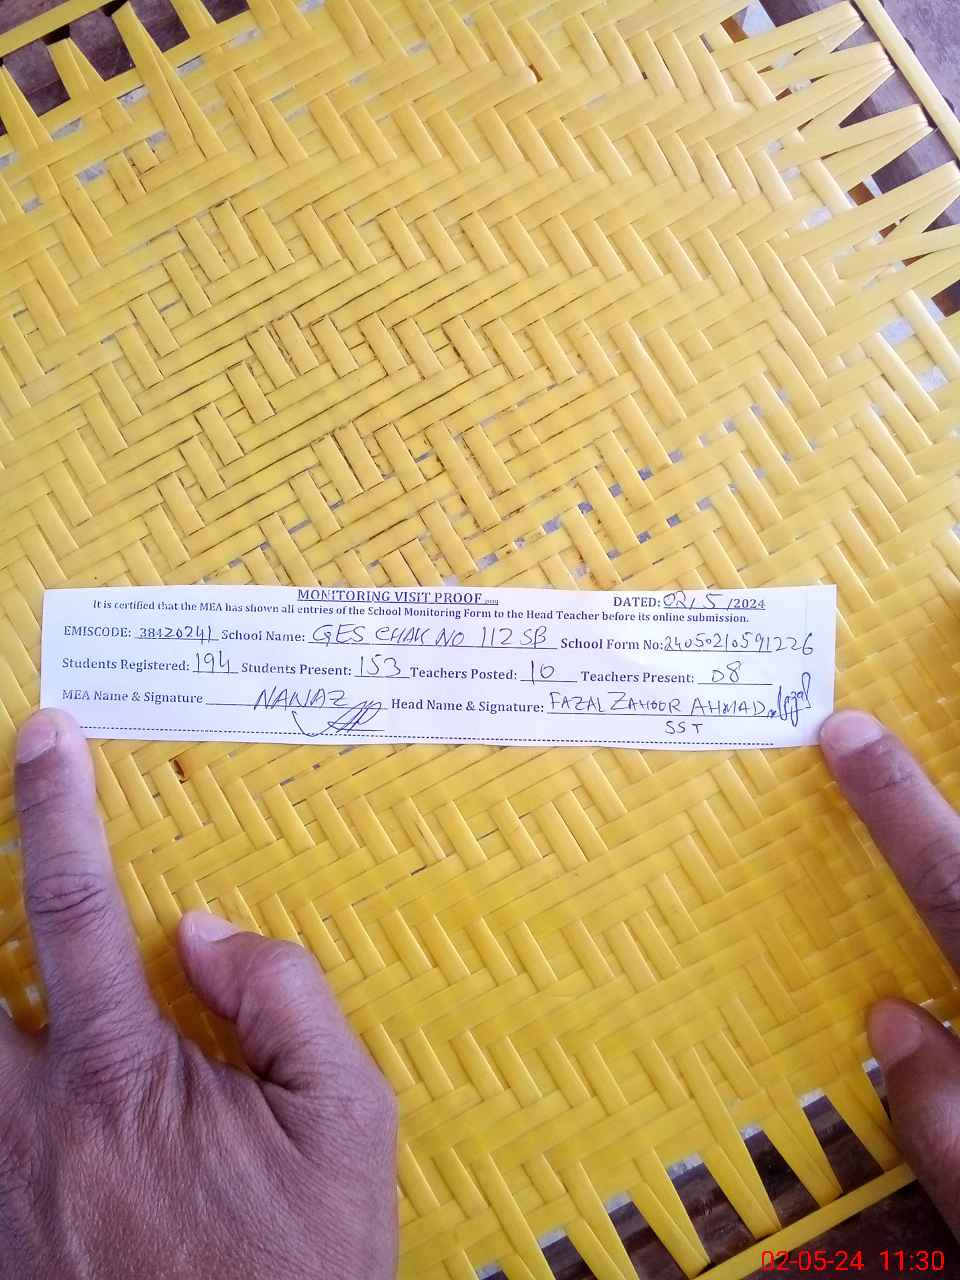 MONITORING VISIT PROOF
DATED: 02/5/2024
It is certified that the MEA has shown all entries of the School Monitoring Form to the Head Teacher before its online submission.
EMISCODE: 38420241 School Name: GES CHAK NO 112 SB School Form No: 24050210591226
Students Registered: 194 Students Present: 153 Teachers Posted: 10 Teachers Present: 08
MEA Name & Signature NANAZ Head Name & Signature: FAZAL ZAHOOR AHMAD
SST
02-05-24 11:30